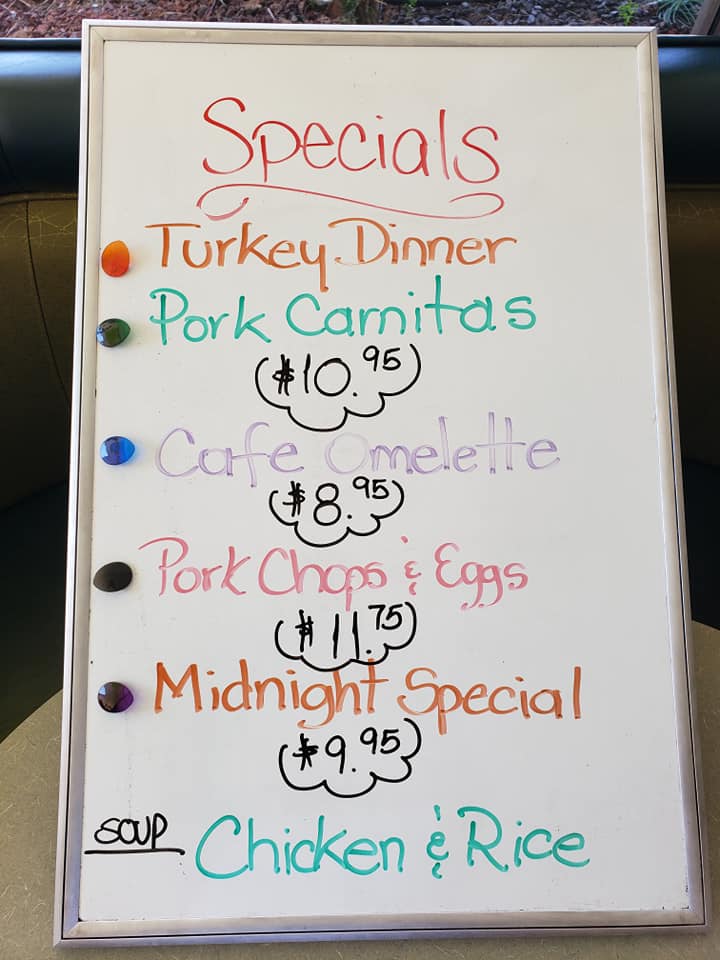 Specials
Turkey Dinner
Pork Carnitas
($10.95)
Cafe Omelette
($8.95)
Pork Chops & Eggs
($11.75)
Midnight Special
($9.95)
SOUP Chicken & Rice